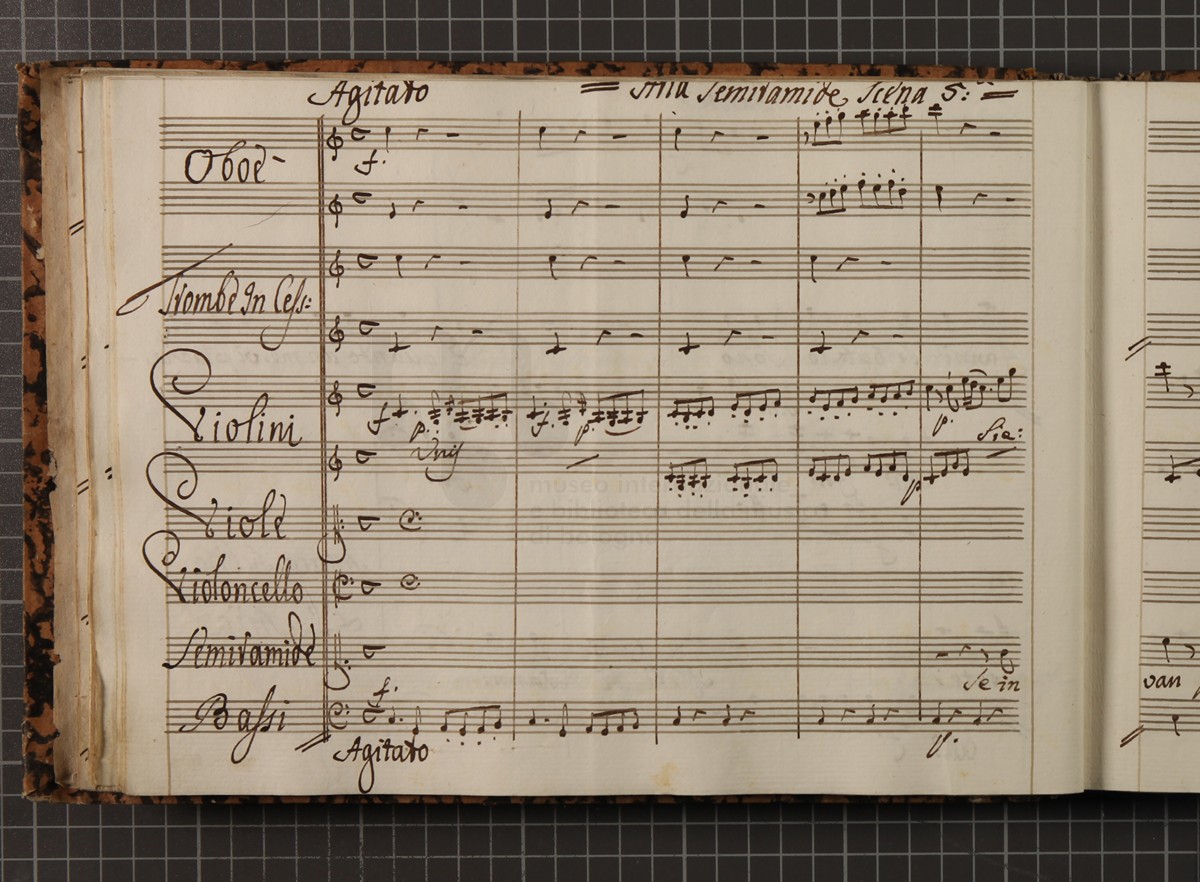 Agitato
Aria Semiramide Scena 5:
Oboè
f.
Trombe In Cess:
Violini
f p. f. p. p.
Sie:
Unis
p
museo internazionale
e biblioteca della musica
di bologna
Viole
Violoncello
Semiramide
Se in
van
f.
Bassi
p.
Agitato